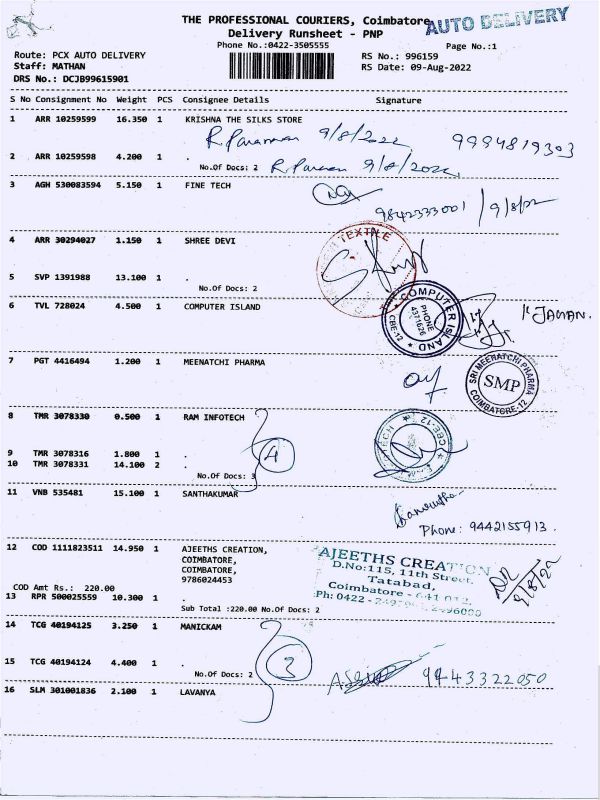 THE PROFESSIONAL COURIERS, Coimbatore
AUTO DELIVERY
Delivery Runsheet - PNP
Phone No.:0422-3505555
Page No.:1
Route: PCX AUTO DELIVERY
RS No.: 996159
Staff: MATHAN
RS Date: 09-Aug-2022
DRS No.: DCJB99615901
S No Consignment No Weight PCS Consignee Details Signature
1 ARR 10259599 16.350 1 KRISHNA THE SILKS STORE
9/8/2022 9994819303
2 ARR 10259598 4.200 1 .
No.Of Docs: 2 9/8/2022
3 AGH 530083594 5.150 1 FINE TECH
9842333001 / 9/8/22
4 ARR 30294027 1.150 1 SHREE DEVI
TEXTILE
5 SVP 1391988 13.100 1 .
No.Of Docs: 2
6 TVL 728024 4.500 1 COMPUTER ISLAND
COMPUTER ISLAND
PHONE
4371626
CBE-12
K JAGAN.
7 PGT 4416494 1.200 1 MEENATCHI PHARMA
SRI MEENATCHI PHARMA
SMP
COIMBATORE-12
8 TMR 3078330 0.500 1 RAM INFOTECH
CBE-12
4
9 TMR 3078316 1.800 1 .
10 TMR 3078331 14.100 2 .
No.Of Docs: 3
11 VNB 535481 15.100 1 SANTHAKUMAR
Phone: 9442155913.
12 COD 1111823511 14.950 1 AJEETHS CREATION,
COIMBATORE,
COIMBATORE,
9786024453
AJEETHS CREATION
D.No:115, 11th Street,
Tatabad,
Coimbatore - 641 012.
Ph: 0422 -
9/8/22
COD Amt Rs.: 220.00
13 RPR 500025559 10.300 1 .
Sub Total :220.00 No.Of Docs: 2
14 TCG 40194125 3.250 1 MANICKAM
3
15 TCG 40194124 4.400 1 .
No.Of Docs: 2
9443322050
16 SLM 301001836 2.100 1 LAVANYA